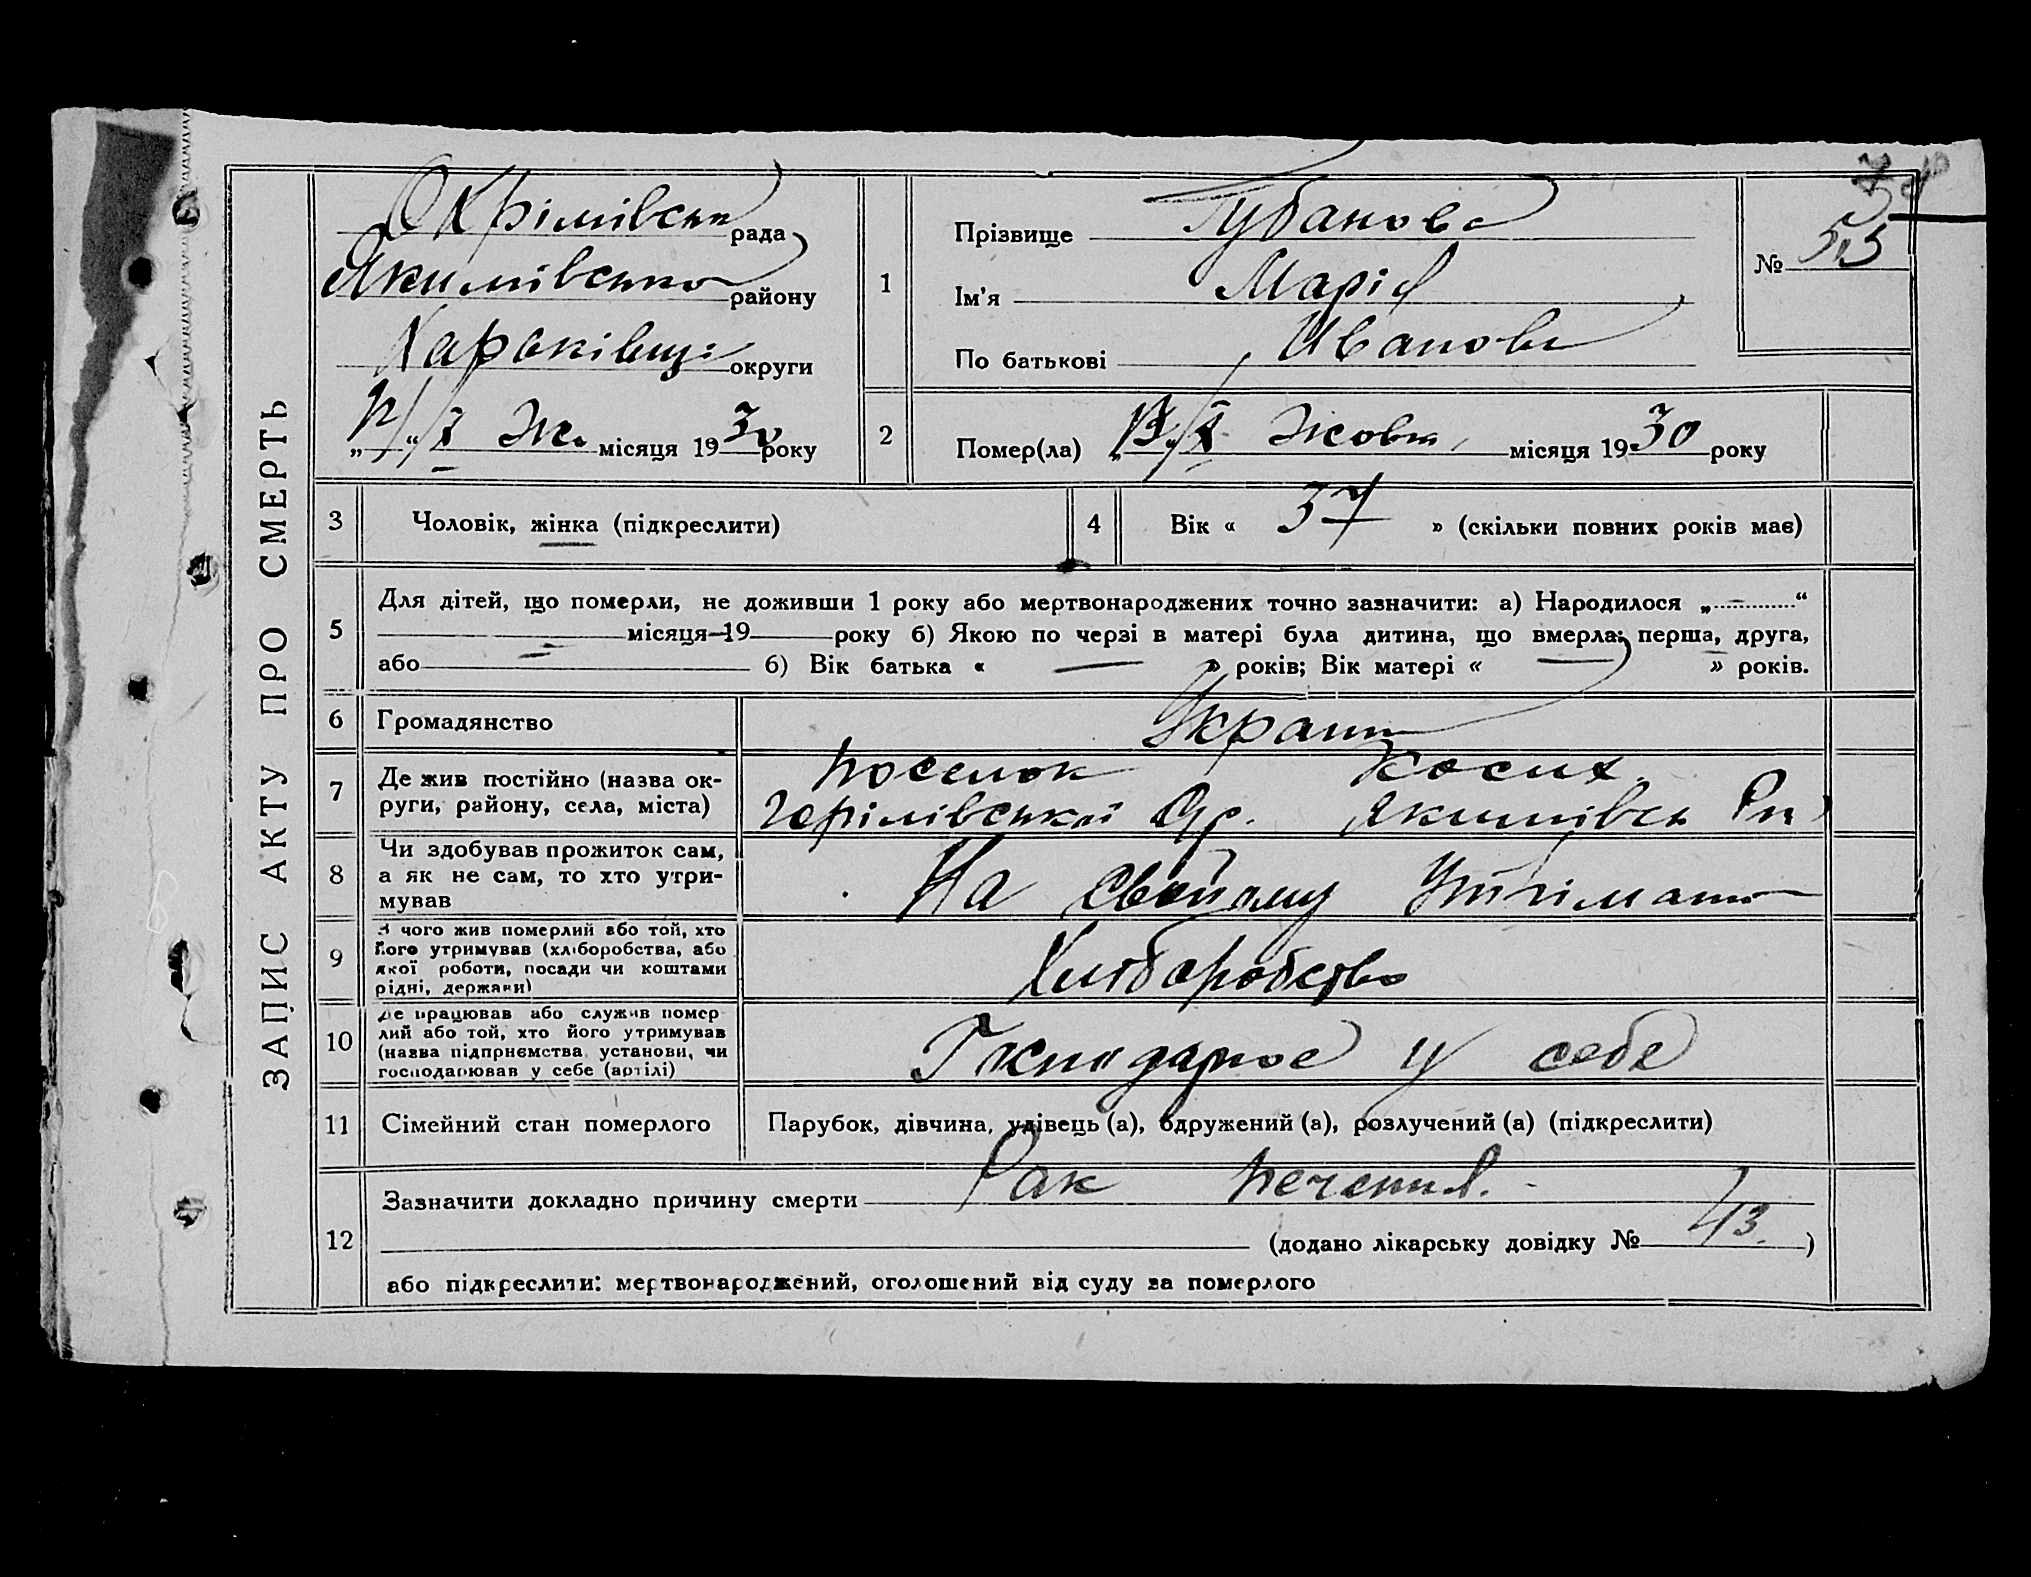 ЗАПИС АКТУ ПРО СМЕРТЬ
рада
Якимівсько району
округи
„ “ Жо. місяця 1930 року
1
Прізвище Губанова
Ім’я Марія
По батькові Иванови
№ 55
2
Помер(ла) „13/X Жовт. місяця 1930 року
3
Чоловік, жінка (підкреслити)
4
Вік « 37 » (скільки повних років має)
5
Для дітей, що померли, не доживши 1 року або мертвонароджених точно зазначити: а) Народилося „ “
місяця 19 року б) Якою по черзі в матері була дитина, що вмерла: перша, друга,
або б) Вік батька « — » років; Вік матері « — » років.
6
Громадянство
Украин
7
Де жив постійно (назва ок-
руги, району, села, міста)
поселок
Якимівськ Рн
8
Чи здобував прожиток сам,
а як не сам, то хто утри-
мував
На свойому утрімани
9
З чого жив померлий або той, хто
його утримував (хліборобства, або
якої роботи, посади чи коштами
рідні, держави)
Хлібаробство
10
Де працював або служив помер
лий або той, хто його утримував
(назва підприємства, установи, чи
господарював у себе (артілі)
у себе
11
Сімейний стан померлого
Парубок, дівчина, удівець (а), одружений (а), розлучений (а) (підкреслити)
12
Зазначити докладно причину смерти Рак печения.
(додано лікарську довідку № 43. )
або підкреслити: мертвонароджений, оголошений від суду за померлого